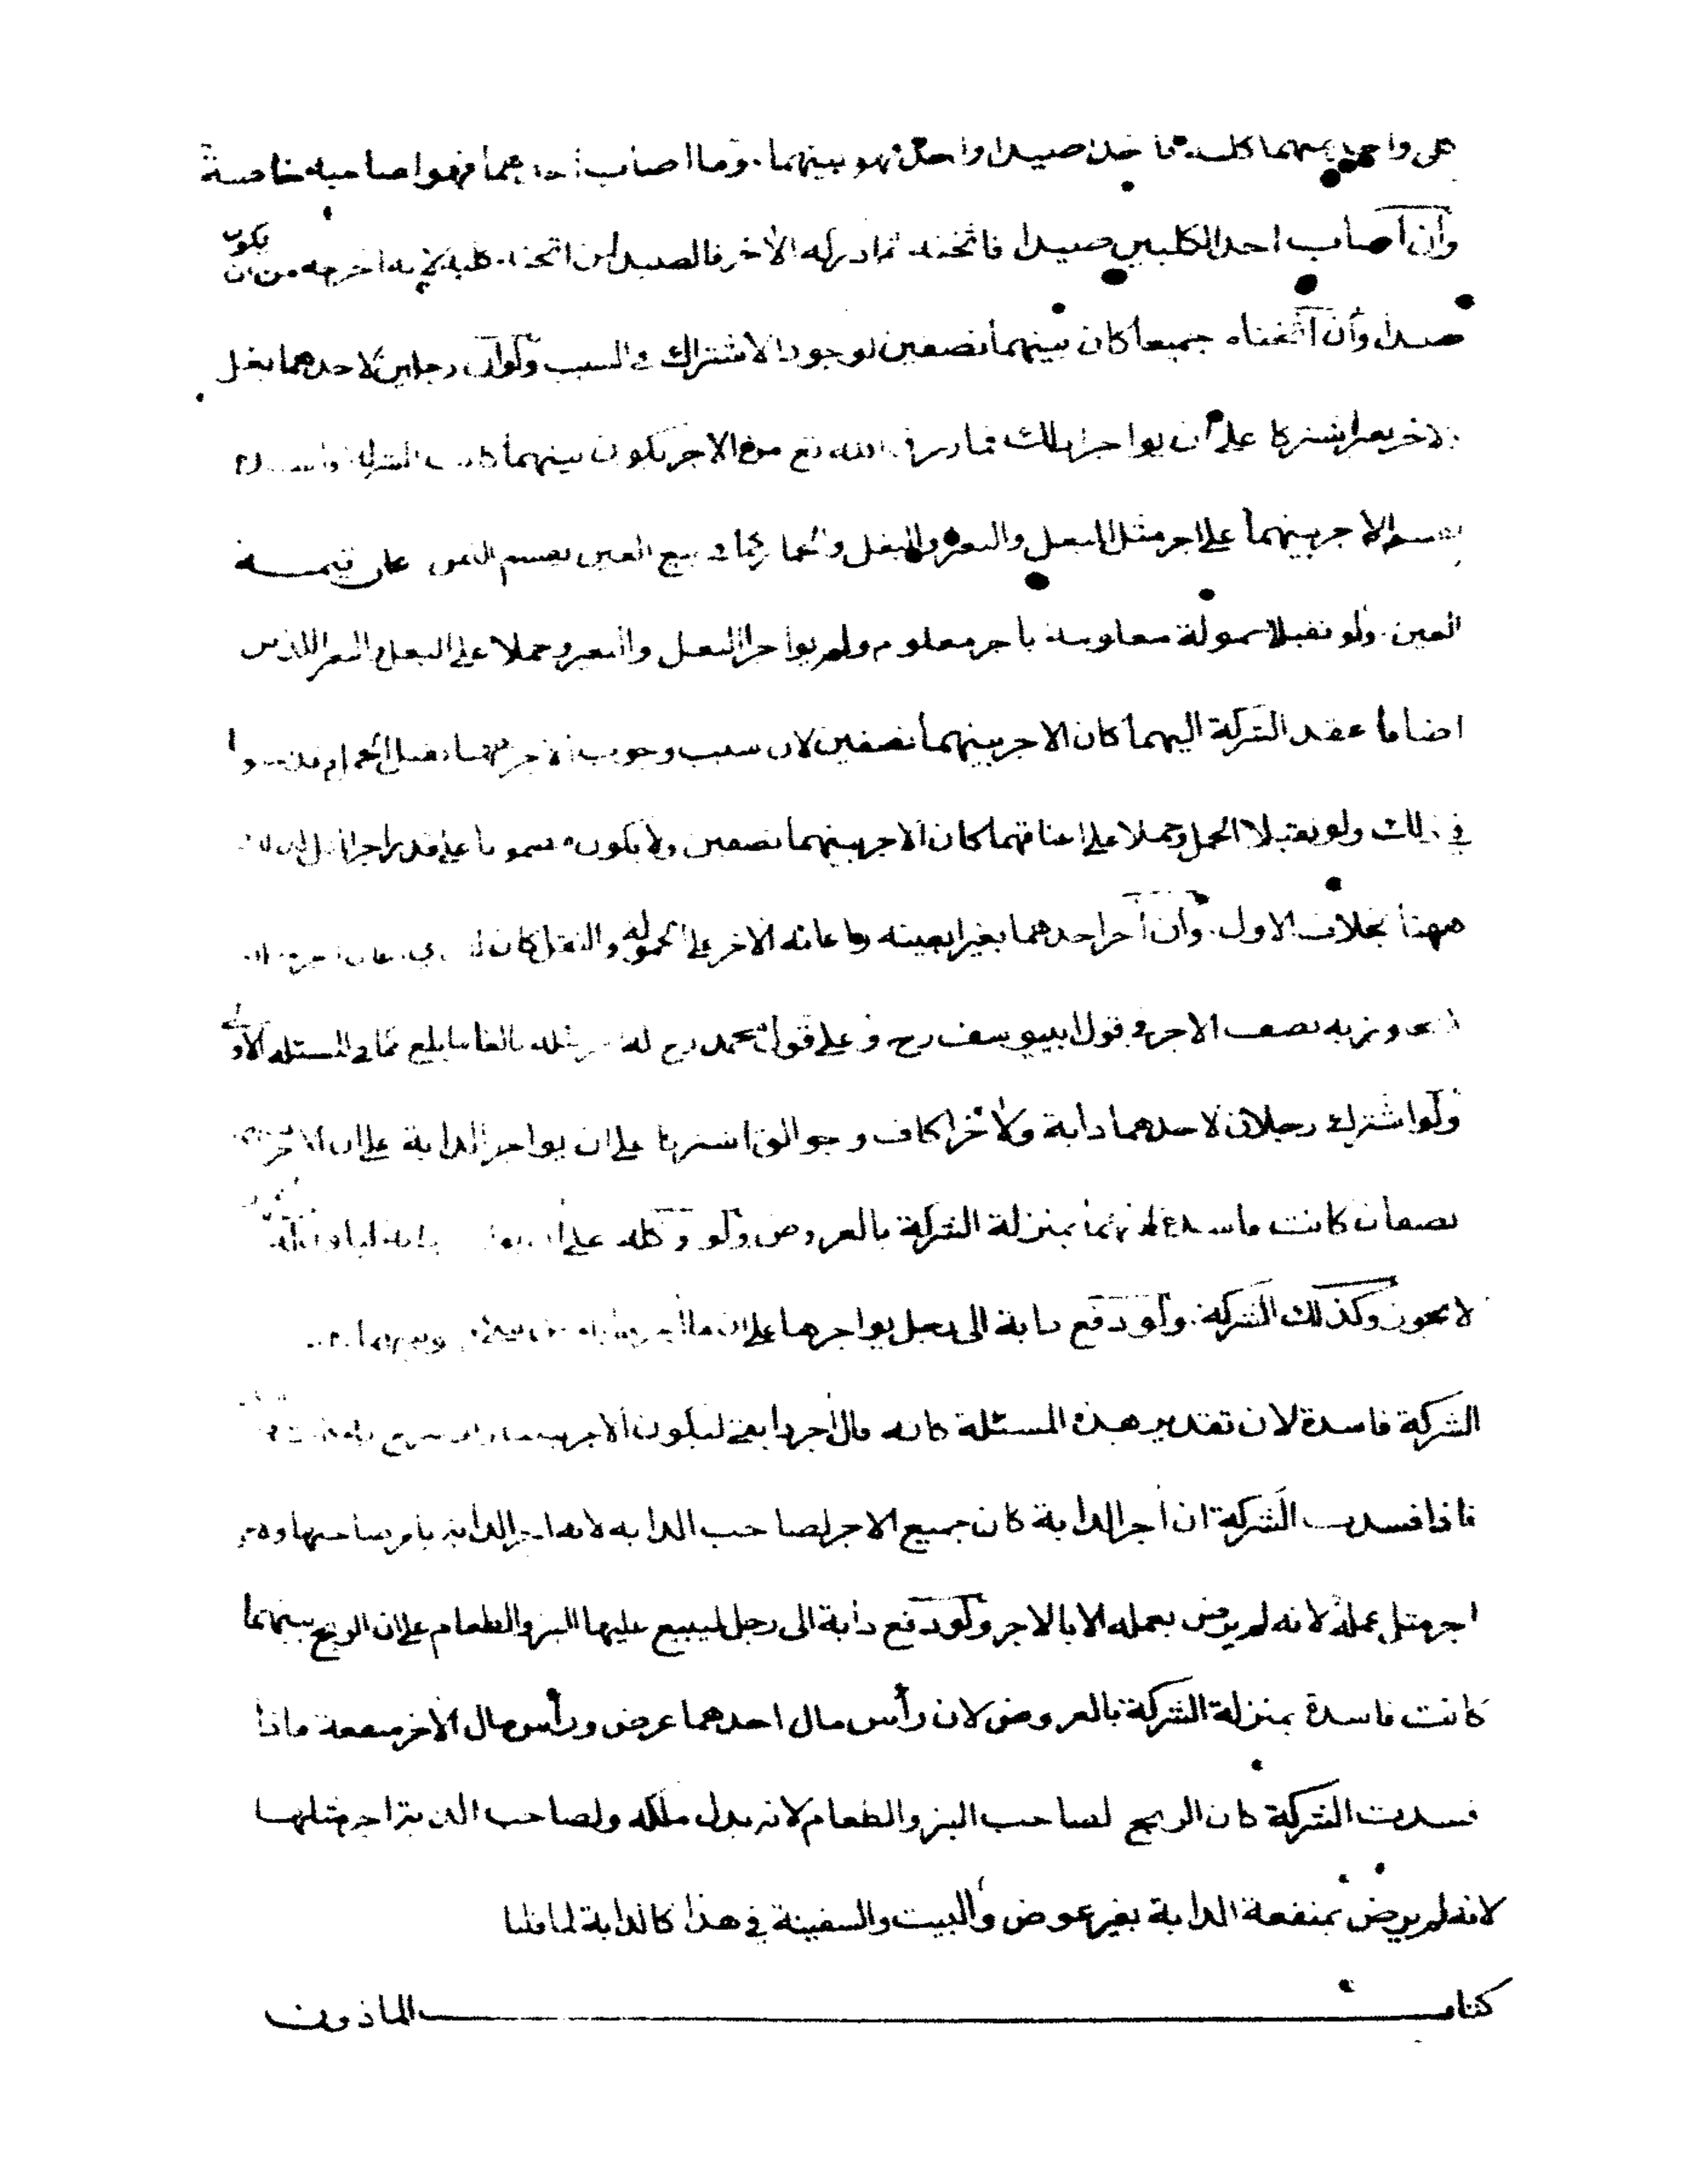 على واحد بينهما كلبه فاخذا صيدا واحدا فهو بينهما وما اصاب احدهما فهو لصاحبه خاصة
وان اصاب احد الكلبين صيدا فاثخنه ثم ادركه الاخر فالصيد لمن اثخنه كلبه لانه اخرجه من ان يكون
صيدا وان اثخناه جميعا كان بينهما نصفين لوجود الاشتراك في السبب ولو ان رجلين لاحدهما بغل
ولاخر بعير اشتركا على ان يواجرا ذلك فما رزق الله تع من الاجر يكون بينهما كانت الشركة فاسدة
يقسم الاجر بينهما على اجر مثل البغل والبعير والبغل والحمار كما في بيع العين يقسم الثمن على قيمـة
العين ولو تقبلا حمولة معلومة باجر معلوم ولم يواجرا البغل والبعير وحملا على البغل والبعير اللذين
اضافا عقد الشركة اليهما كان الاجر بينهما نصفين لان سبب وجوب الاجر
في ذلك ولو تقبلا الحمل وحملا على اعناقهما كان الاجر بينهما نصفين ولا يكون مقسوما على قدر اجر
ههنا بخلاف الاول وان آجر احدهما بغيرا بعينه واعانه الاخر على الحمولة والنقل كان
نصف الاجر في قول ابييوسف رح وعلى قول محمد رح له اجر مثله بالغا ما بلغ كما في المسئله الاولى
ولو اشترك رجلان لاحدهما دابة ولاخر اكاف وجوالق اشتركا على ان يواجر الدابة على ان الاجر
نصفان كانت فاسدة لانهما بمنزلة الشركة بالعروض ولو وكله على ان
لا يجوز وكذلك الشركة ولو دفع دابة الى رجل يواجرها على ان ما آجر
الشركة فاسدة لان تقدير هذه المسئلة كانه قال آجر دابتى ليكون الاجر بيننا
فاذا فسدت الشركة ان آجر الدابة كان جميع الاجر لصاحب الدابه لانه آجر الدابة بامر صاحبها وله
اجر مثل عمله لانه لم يرض بعمله الا بالاجر ولو دفع دابة الى رجل ليبيع عليها البز والطعام على ان الربح بينهما
كانت فاسدة بمنزلة الشركة بالعروض لان رأس مال احدهما عرض ورأس مال الاخر منفعة فاذا
فسدت الشركة كان الربح لصاحب البز والطعام لانه بدل ملكه ولصاحب الدابة اجر مثلها
لانه لم يرض بمنفعة الدابة بغير عوض والبيت والسفينة في هذا كالدابة لما قلنا
كتاب الماذون